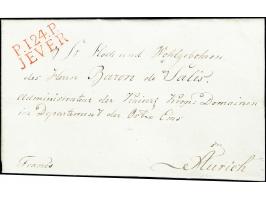 P.124.P.
JEVER
Sr. Hoch und Wohlgebohren
des Herrn Baron de Salis.
Administrateur der Kaiserl. Domainen
im Departement der Oster Ems
Franco
Aurich